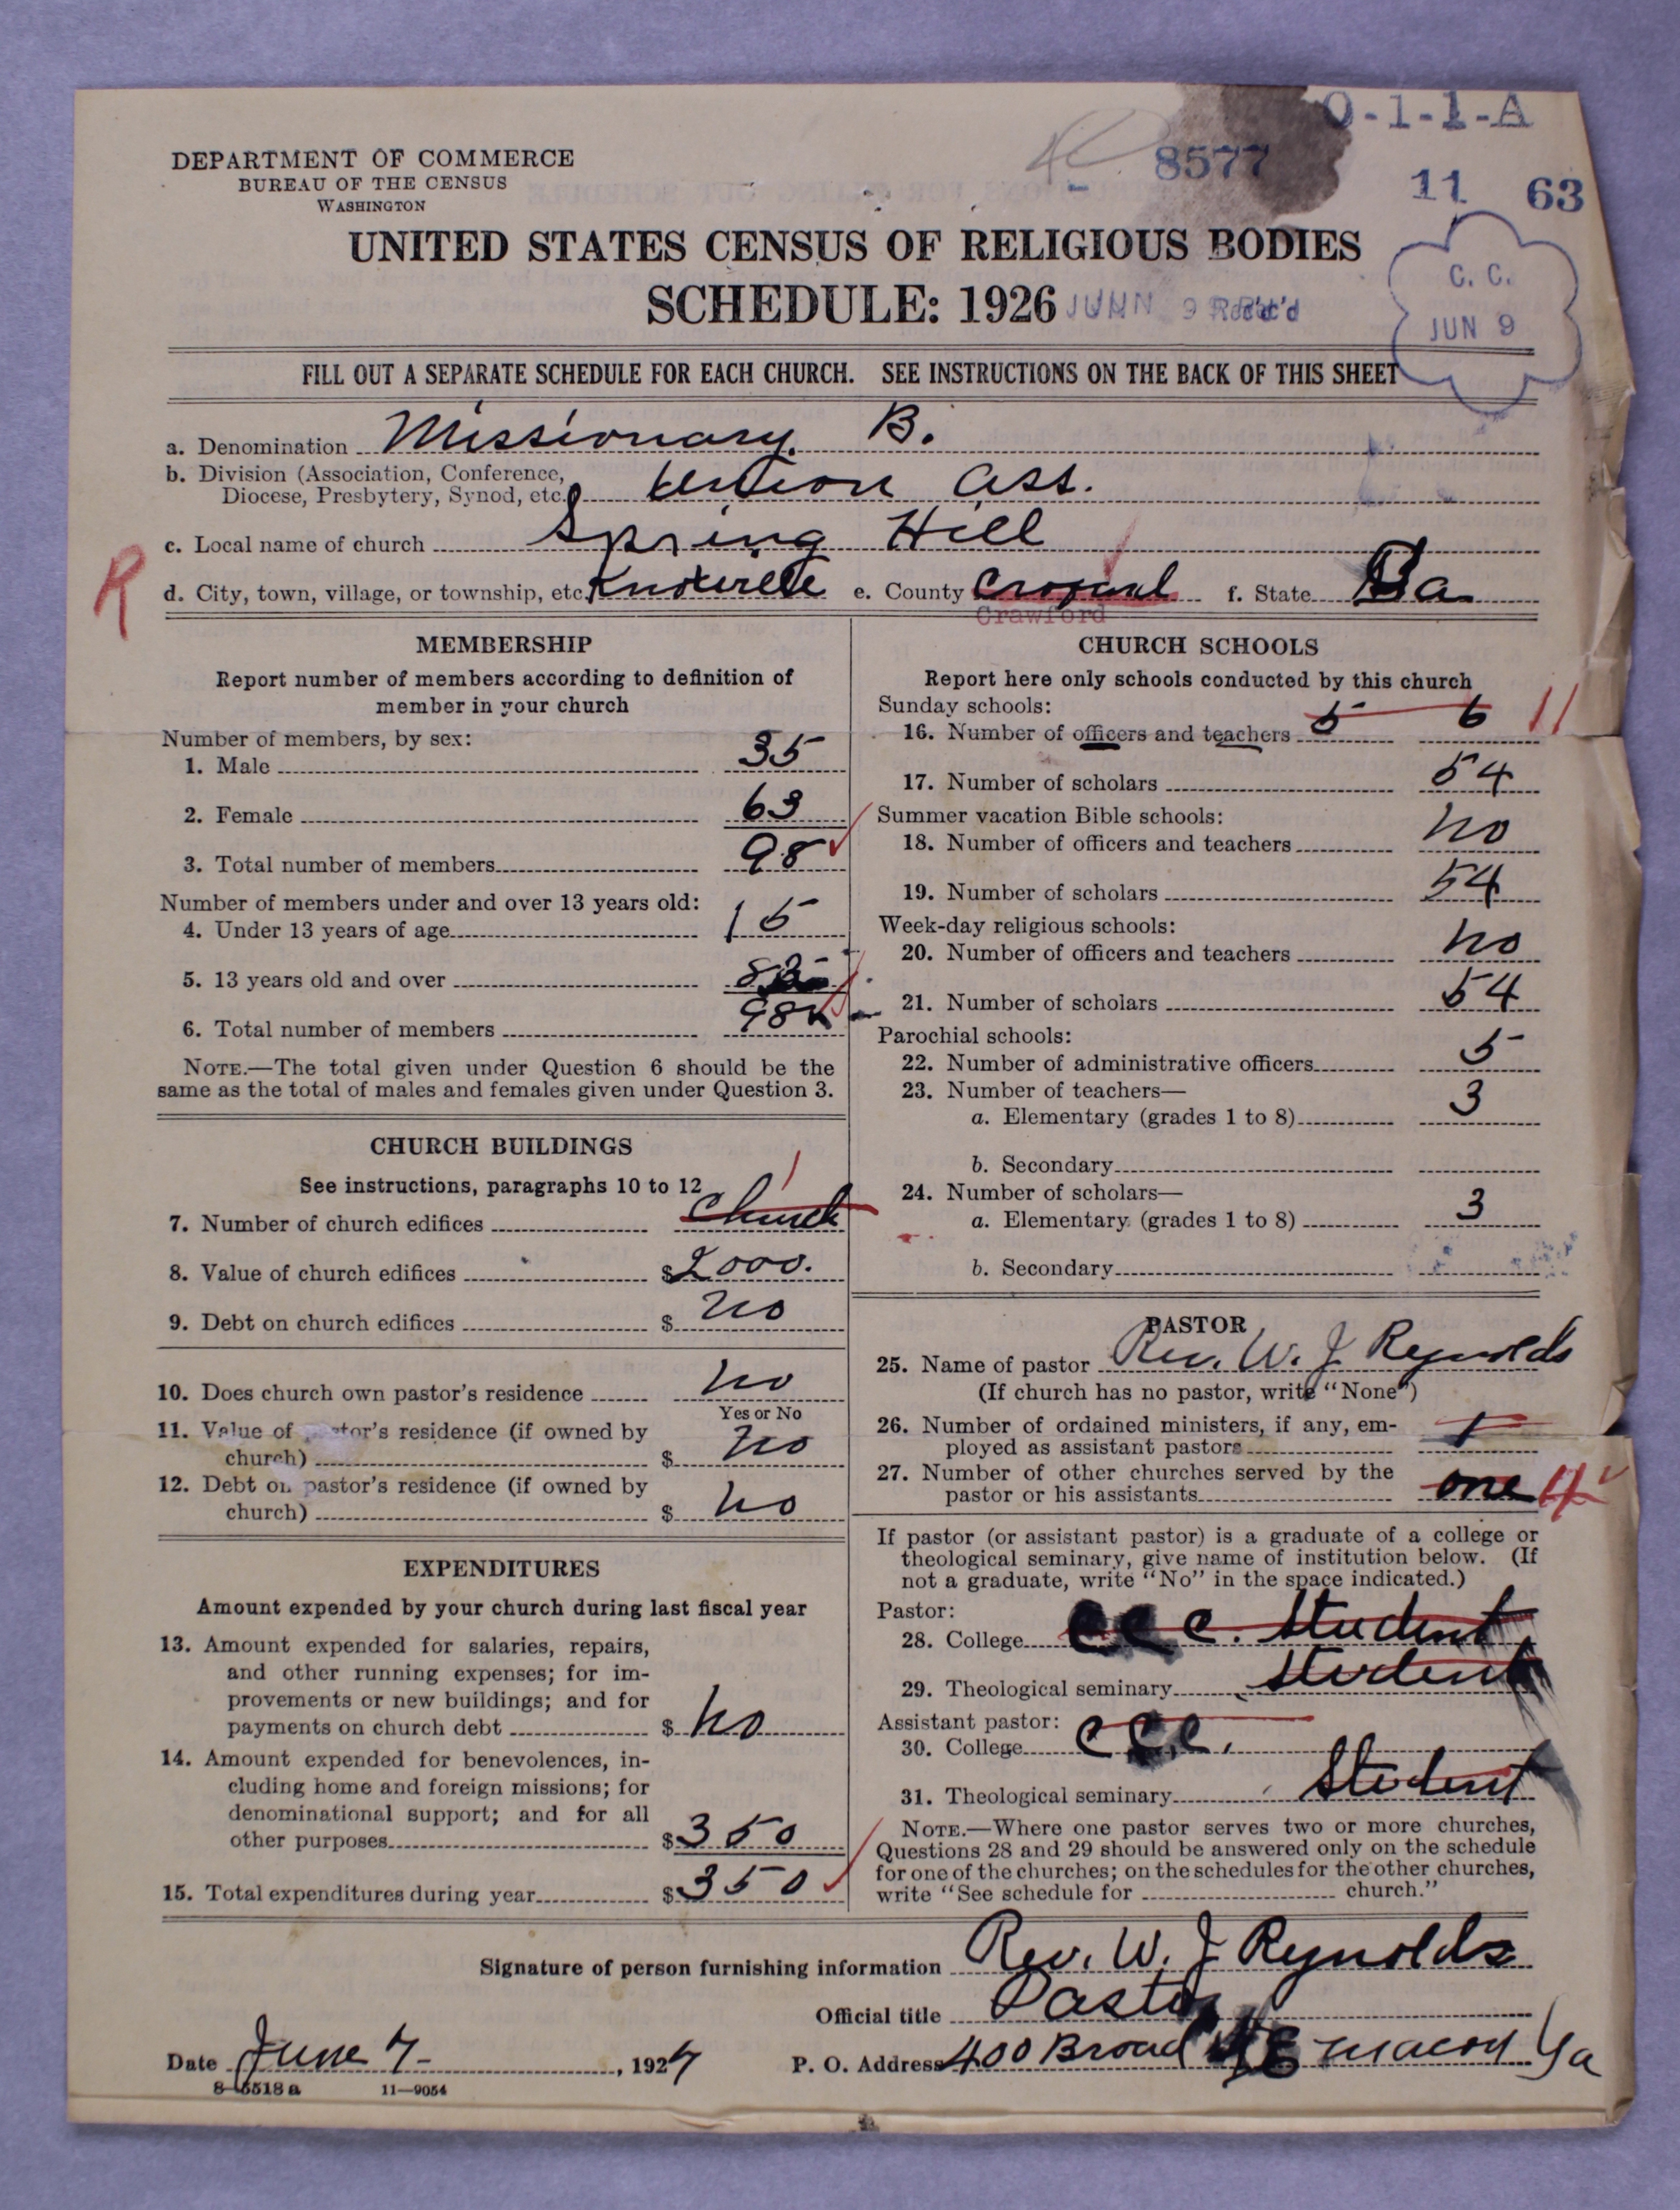 O-1-1-A
8577
11 63
DEPARTMENT OF COMMERCE
BUREAU OF THE CENSUS
WASHINGTON
UNITED STATES CENSUS OF RELIGIOUS BODIES
SCHEDULE: 1926
JUN 9 Rec'd
C. C.
JUN 9
FILL OUT A SEPARATE SCHEDULE FOR EACH CHURCH. SEE INSTRUCTIONS ON THE BACK OF THIS SHEET
a. Denomination Missionary B.
b. Division (Association, Conference,
Diocese, Presbytery, Synod, etc. Union Ass.
c. Local name of church Spring Hill
R
d. City, town, village, or township, etc. e. County f. State Ga
Crawford
MEMBERSHIP
Report number of members according to definition of
member in your church
Number of members, by sex:
1. Male 35
2. Female 63
3. Total number of members 98
Number of members under and over 13 years old:
4. Under 13 years of age 15
5. 13 years old and over 83
6. Total number of members 98
NOTE.—The total given under Question 6 should be the
same as the total of males and females given under Question 3.
CHURCH BUILDINGS
See instructions, paragraphs 10 to 12
1
7. Number of church edifices Church
8. Value of church edifices $2000.
9. Debt on church edifices $ no
10. Does church own pastor's residence no
Yes or No
11. Value of pastor's residence (if owned by
church) $ no
12. Debt on pastor's residence (if owned by
church) $ no
EXPENDITURES
Amount expended by your church during last fiscal year
13. Amount expended for salaries, repairs,
and other running expenses; for im-
provements or new buildings; and for
payments on church debt $ no
14. Amount expended for benevolences, in-
cluding home and foreign missions; for
denominational support; and for all
other purposes $350
15. Total expenditures during year $350
CHURCH SCHOOLS
Report here only schools conducted by this church
Sunday schools:
16. Number of officers and teachers 5 6 11
17. Number of scholars 54
Summer vacation Bible schools:
18. Number of officers and teachers no
19. Number of scholars 54
Week-day religious schools:
20. Number of officers and teachers no
21. Number of scholars 54
Parochial schools:
22. Number of administrative officers 5
23. Number of teachers—
a. Elementary (grades 1 to 8) 3
b. Secondary
24. Number of scholars—
a. Elementary (grades 1 to 8) 3
b. Secondary
PASTOR
25. Name of pastor Rev. W. J Reynolds
(If church has no pastor, write "None")
26. Number of ordained ministers, if any, em-
ployed as assistant pastors 1
27. Number of other churches served by the
pastor or his assistants one
If pastor (or assistant pastor) is a graduate of a college or
theological seminary, give name of institution below. (If
not a graduate, write "No" in the space indicated.)
Pastor:
28. College C C C. Student
29. Theological seminary Student
Assistant pastor:
30. College C C C.
31. Theological seminary Student
NOTE.—Where one pastor serves two or more churches,
Questions 28 and 29 should be answered only on the schedule
for one of the churches; on the schedules for the other churches,
write "See schedule for church."
Signature of person furnishing information Rev. W. J Reynolds
Official title Pastor
Date June 7, 1927 P. O. Address 400 Broad Macon Ga
8-5518a 11-9054